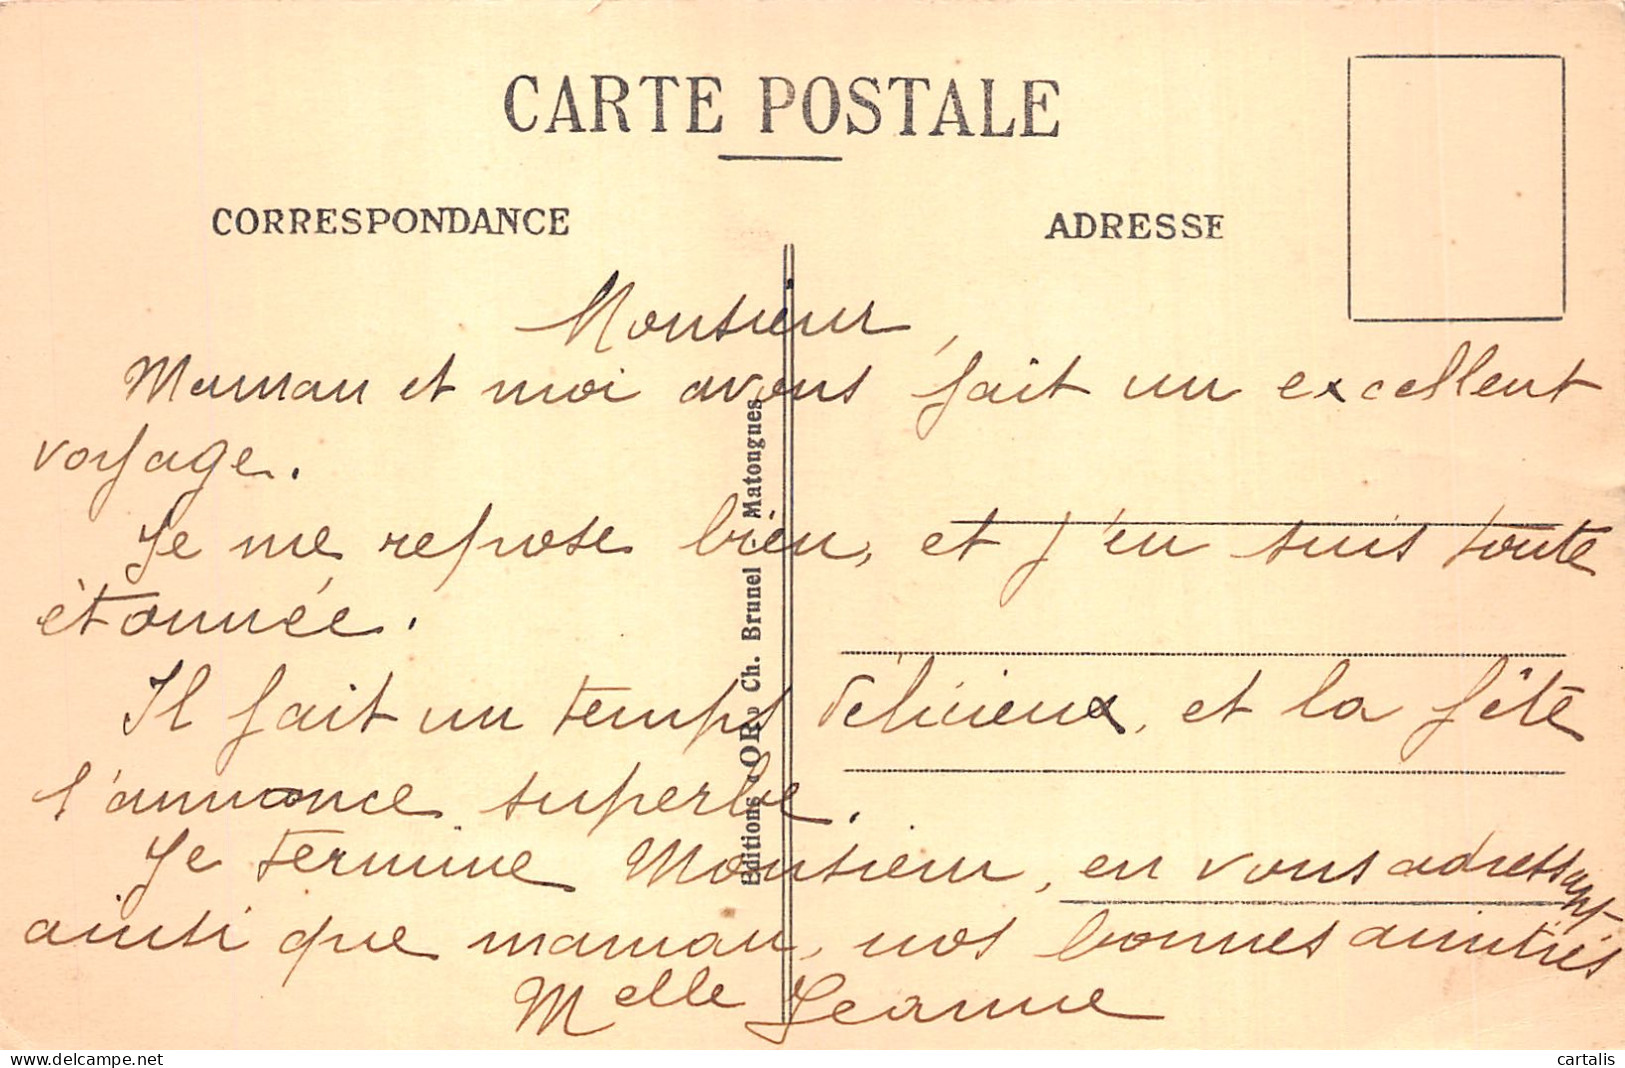 CARTE POSTALE
CORRESPONDANCE
ADRESSE
Monsieur,
Maman et moi avons fait un excellent
voyage.
Je me repose bien, et j'en suis toute
étonnée.
Il fait un temps délicieux, et la fête
s'annonce superbe.
Je termine Monsieur, en vous adressant
ainsi que maman, nos bonnes amitiés
Melle Jeanne
Editions «OR» Ch. Brunel - Matougues
cartalis